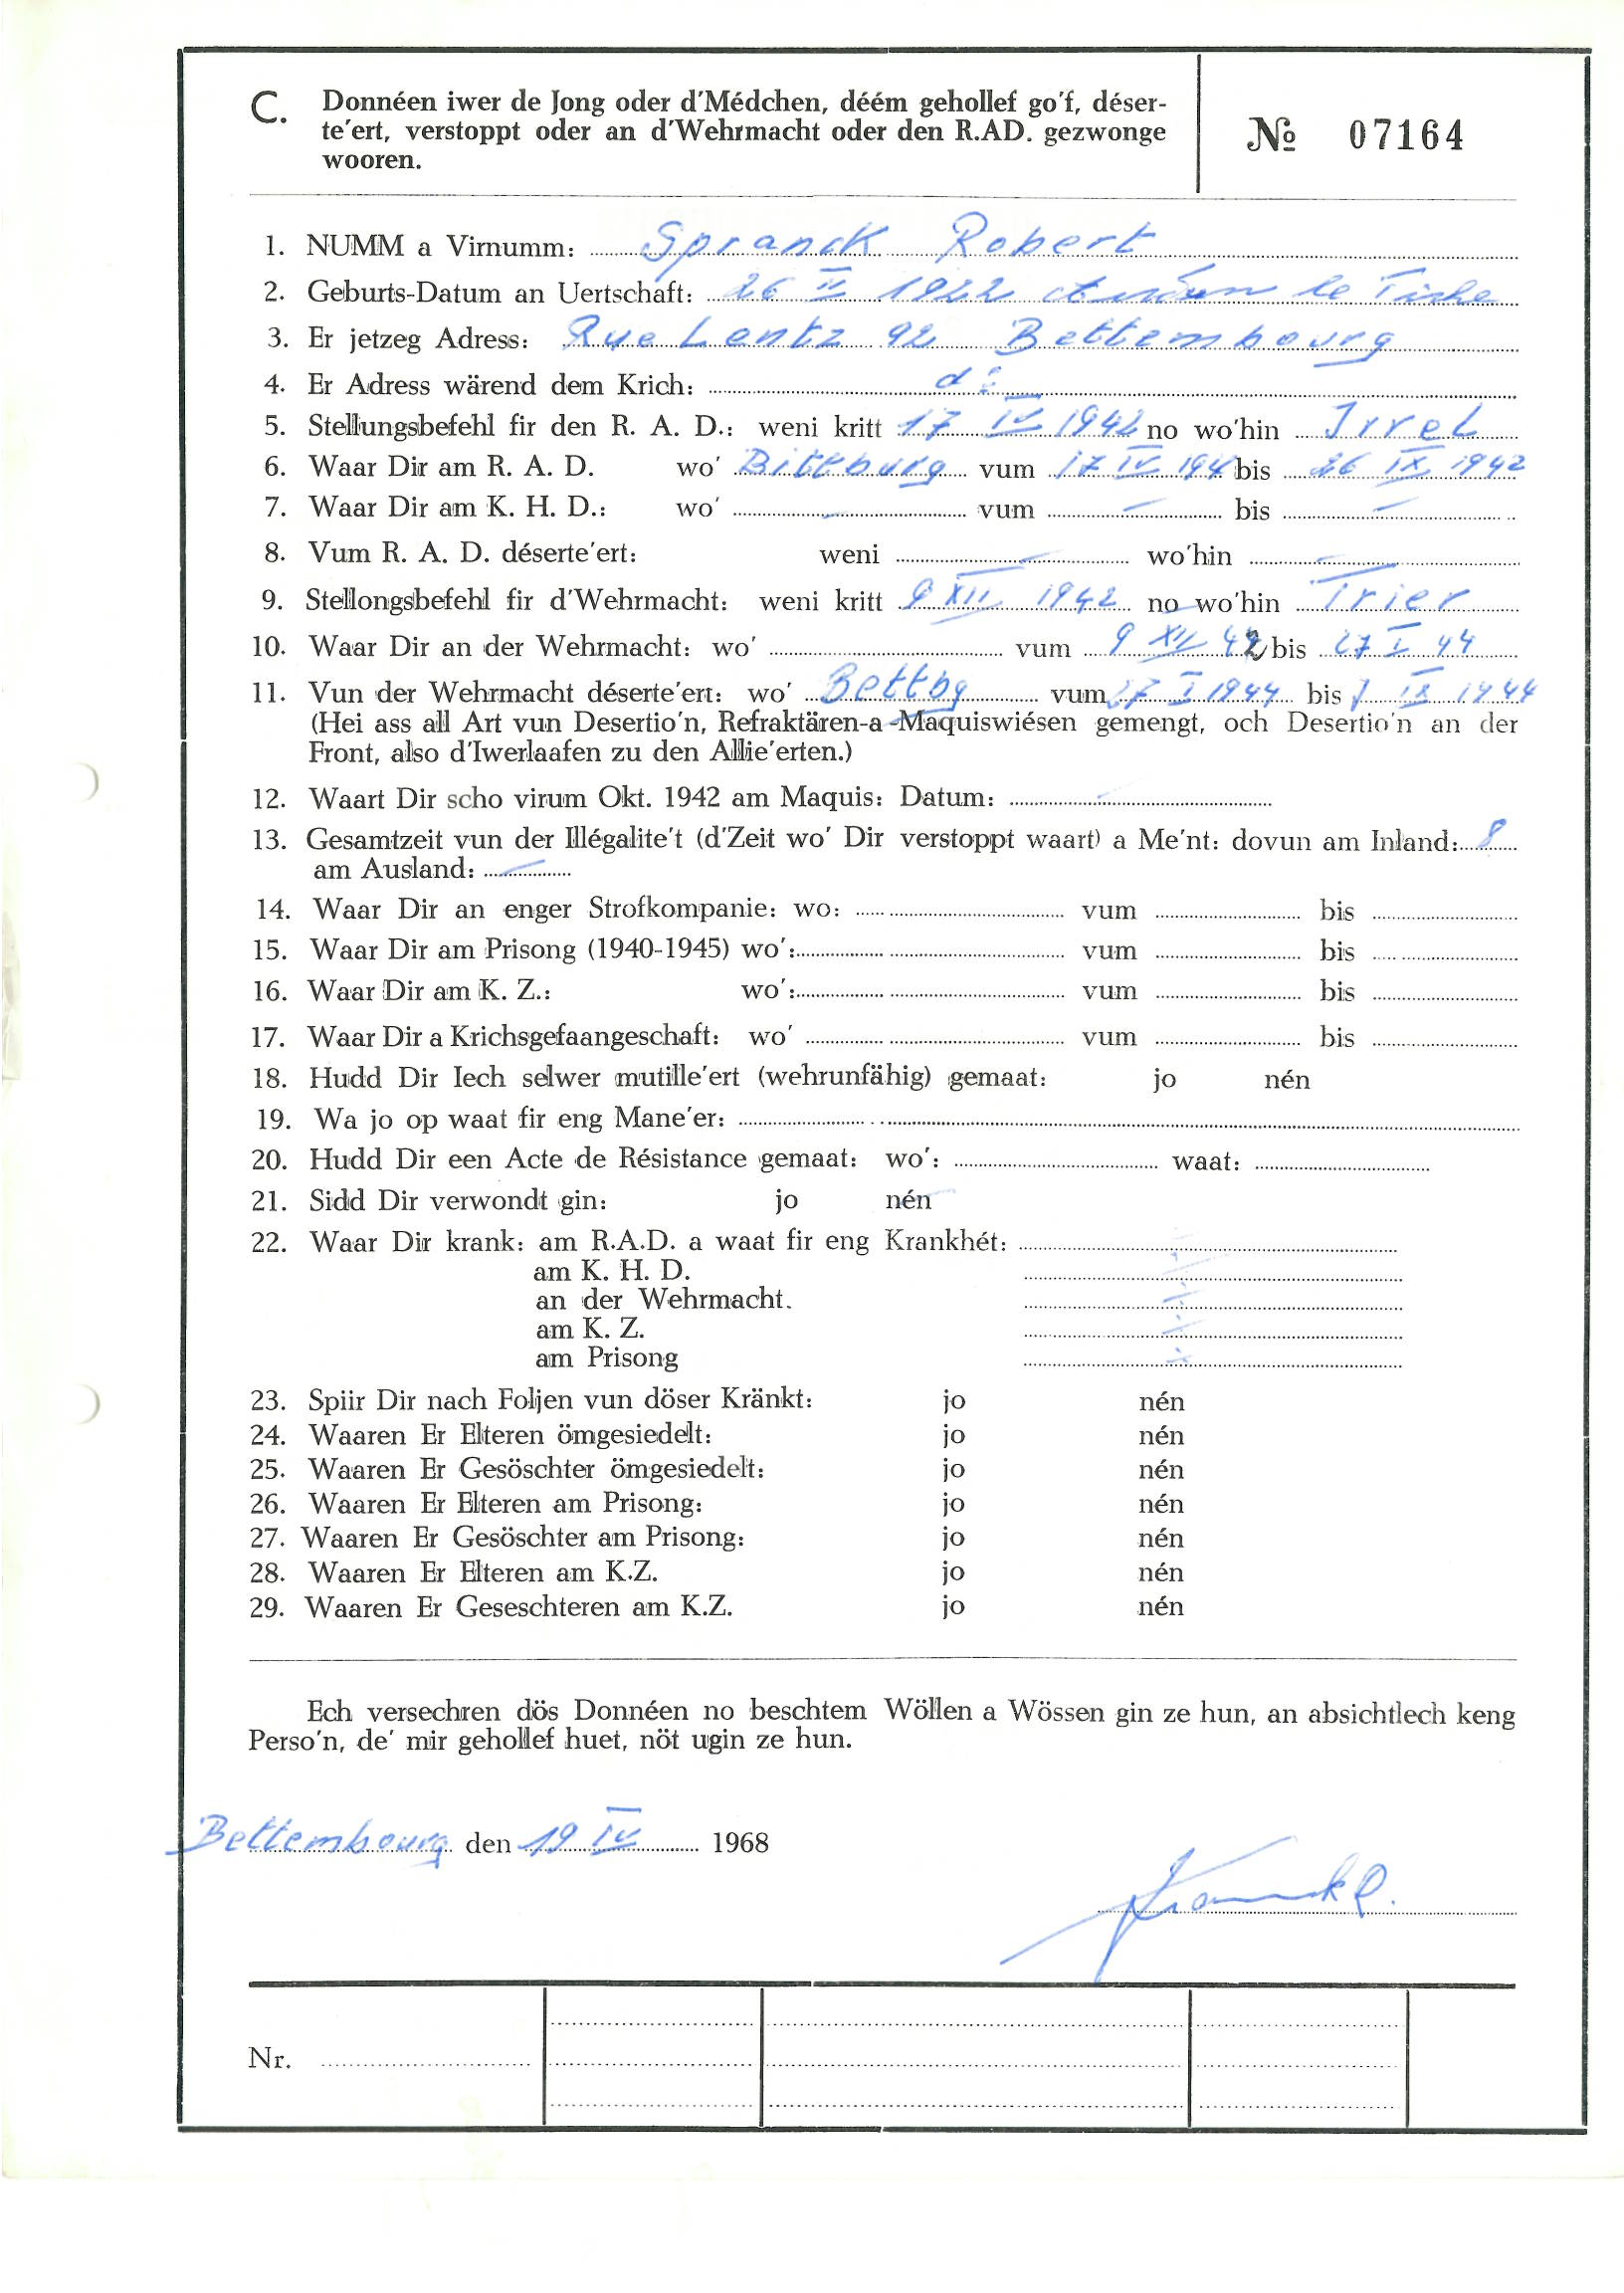 C. Donnéen iwer de Jong oder d'Médchen, déém gehollef go'f, déser-
te'ert, verstoppt oder an d'Wehrmacht oder den R.AD. gezwonge
wooren.
№ 07164
1. NUMM a Virnumm: Spranck Robert
2. Geburts-Datum an Uertschaft: 26 II 1922 le Tiche
3. Er jetzeg Adress: Rue Lentz 92 Bettembourg
4. Er Adress wärend dem Krich: d°
5. Stellungsbefehl fir den R. A. D.: weni kritt 17 IV 1942 no wo'hin Irrel
6. Waar Dir am R. A. D. wo' Bittburg vum 17 IV 194 bis 26 IX 1942
7. Waar Dir am K. H. D.: wo' — vum — bis —
8. Vum R. A. D. déserte'ert: weni — wo'hin —
9. Stellongsbefehl fir d'Wehrmacht: weni kritt 9 XII 1942 no wo'hin Trier
10. Waar Dir an der Wehrmacht: wo' vum 9 XII 42 bis 27 I 44
11. Vun der Wehrmacht déserte'ert: wo' Bettbg vum 27 I 1944 bis 7 IX 1944
(Hei ass all Art vun Desertio'n, Refraktären-a-Maquiswiésen gemengt, och Desertio'n an der
Front, also d'Iwerlaafen zu den Allie'erten.)
12. Waart Dir scho virum Okt. 1942 am Maquis: Datum: —
13. Gesamtzeit vun der Illégalite't (d'Zeit wo' Dir verstoppt waart) a Me'nt: dovun am Inland: 8
am Ausland: —
14. Waar Dir an enger Strofkompanie: wo: vum bis
15. Waar Dir am Prisong (1940-1945) wo': vum bis
16. Waar Dir am K. Z.: wo': vum bis
17. Waar Dir a Krichsgefaangeschaft: wo' vum bis
18. Hudd Dir Iech selwer mutille'ert (wehrunfähig) gemaat: jo nén
19. Wa jo op waat fir eng Mane'er:
20. Hudd Dir een Acte de Résistance gemaat: wo': waat:
21. Sidd Dir verwondt gin: jo nén
22. Waar Dir krank: am R.A.D. a waat fir eng Krankhét:
am K. H. D.
an der Wehrmacht.
am K. Z.
am Prisong
23. Spiir Dir nach Foljen vun döser Kränkt: jo nén
24. Waaren Er Elteren ömgesiedelt: jo nén
25. Waaren Er Gesöschter ömgesiedelt: jo nén
26. Waaren Er Elteren am Prisong: jo nén
27. Waaren Er Gesöschter am Prisong: jo nén
28. Waaren Er Elteren am K.Z. jo nén
29. Waaren Er Geseschteren am K.Z. jo nén
Ech versechren dös Donnéen no beschtem Wöllen a Wössen gin ze hun, an absichtlech keng
Perso'n, de' mir gehollef huet, nöt ugin ze hun.
Bettembourg den 19 IV 1968
Nr.